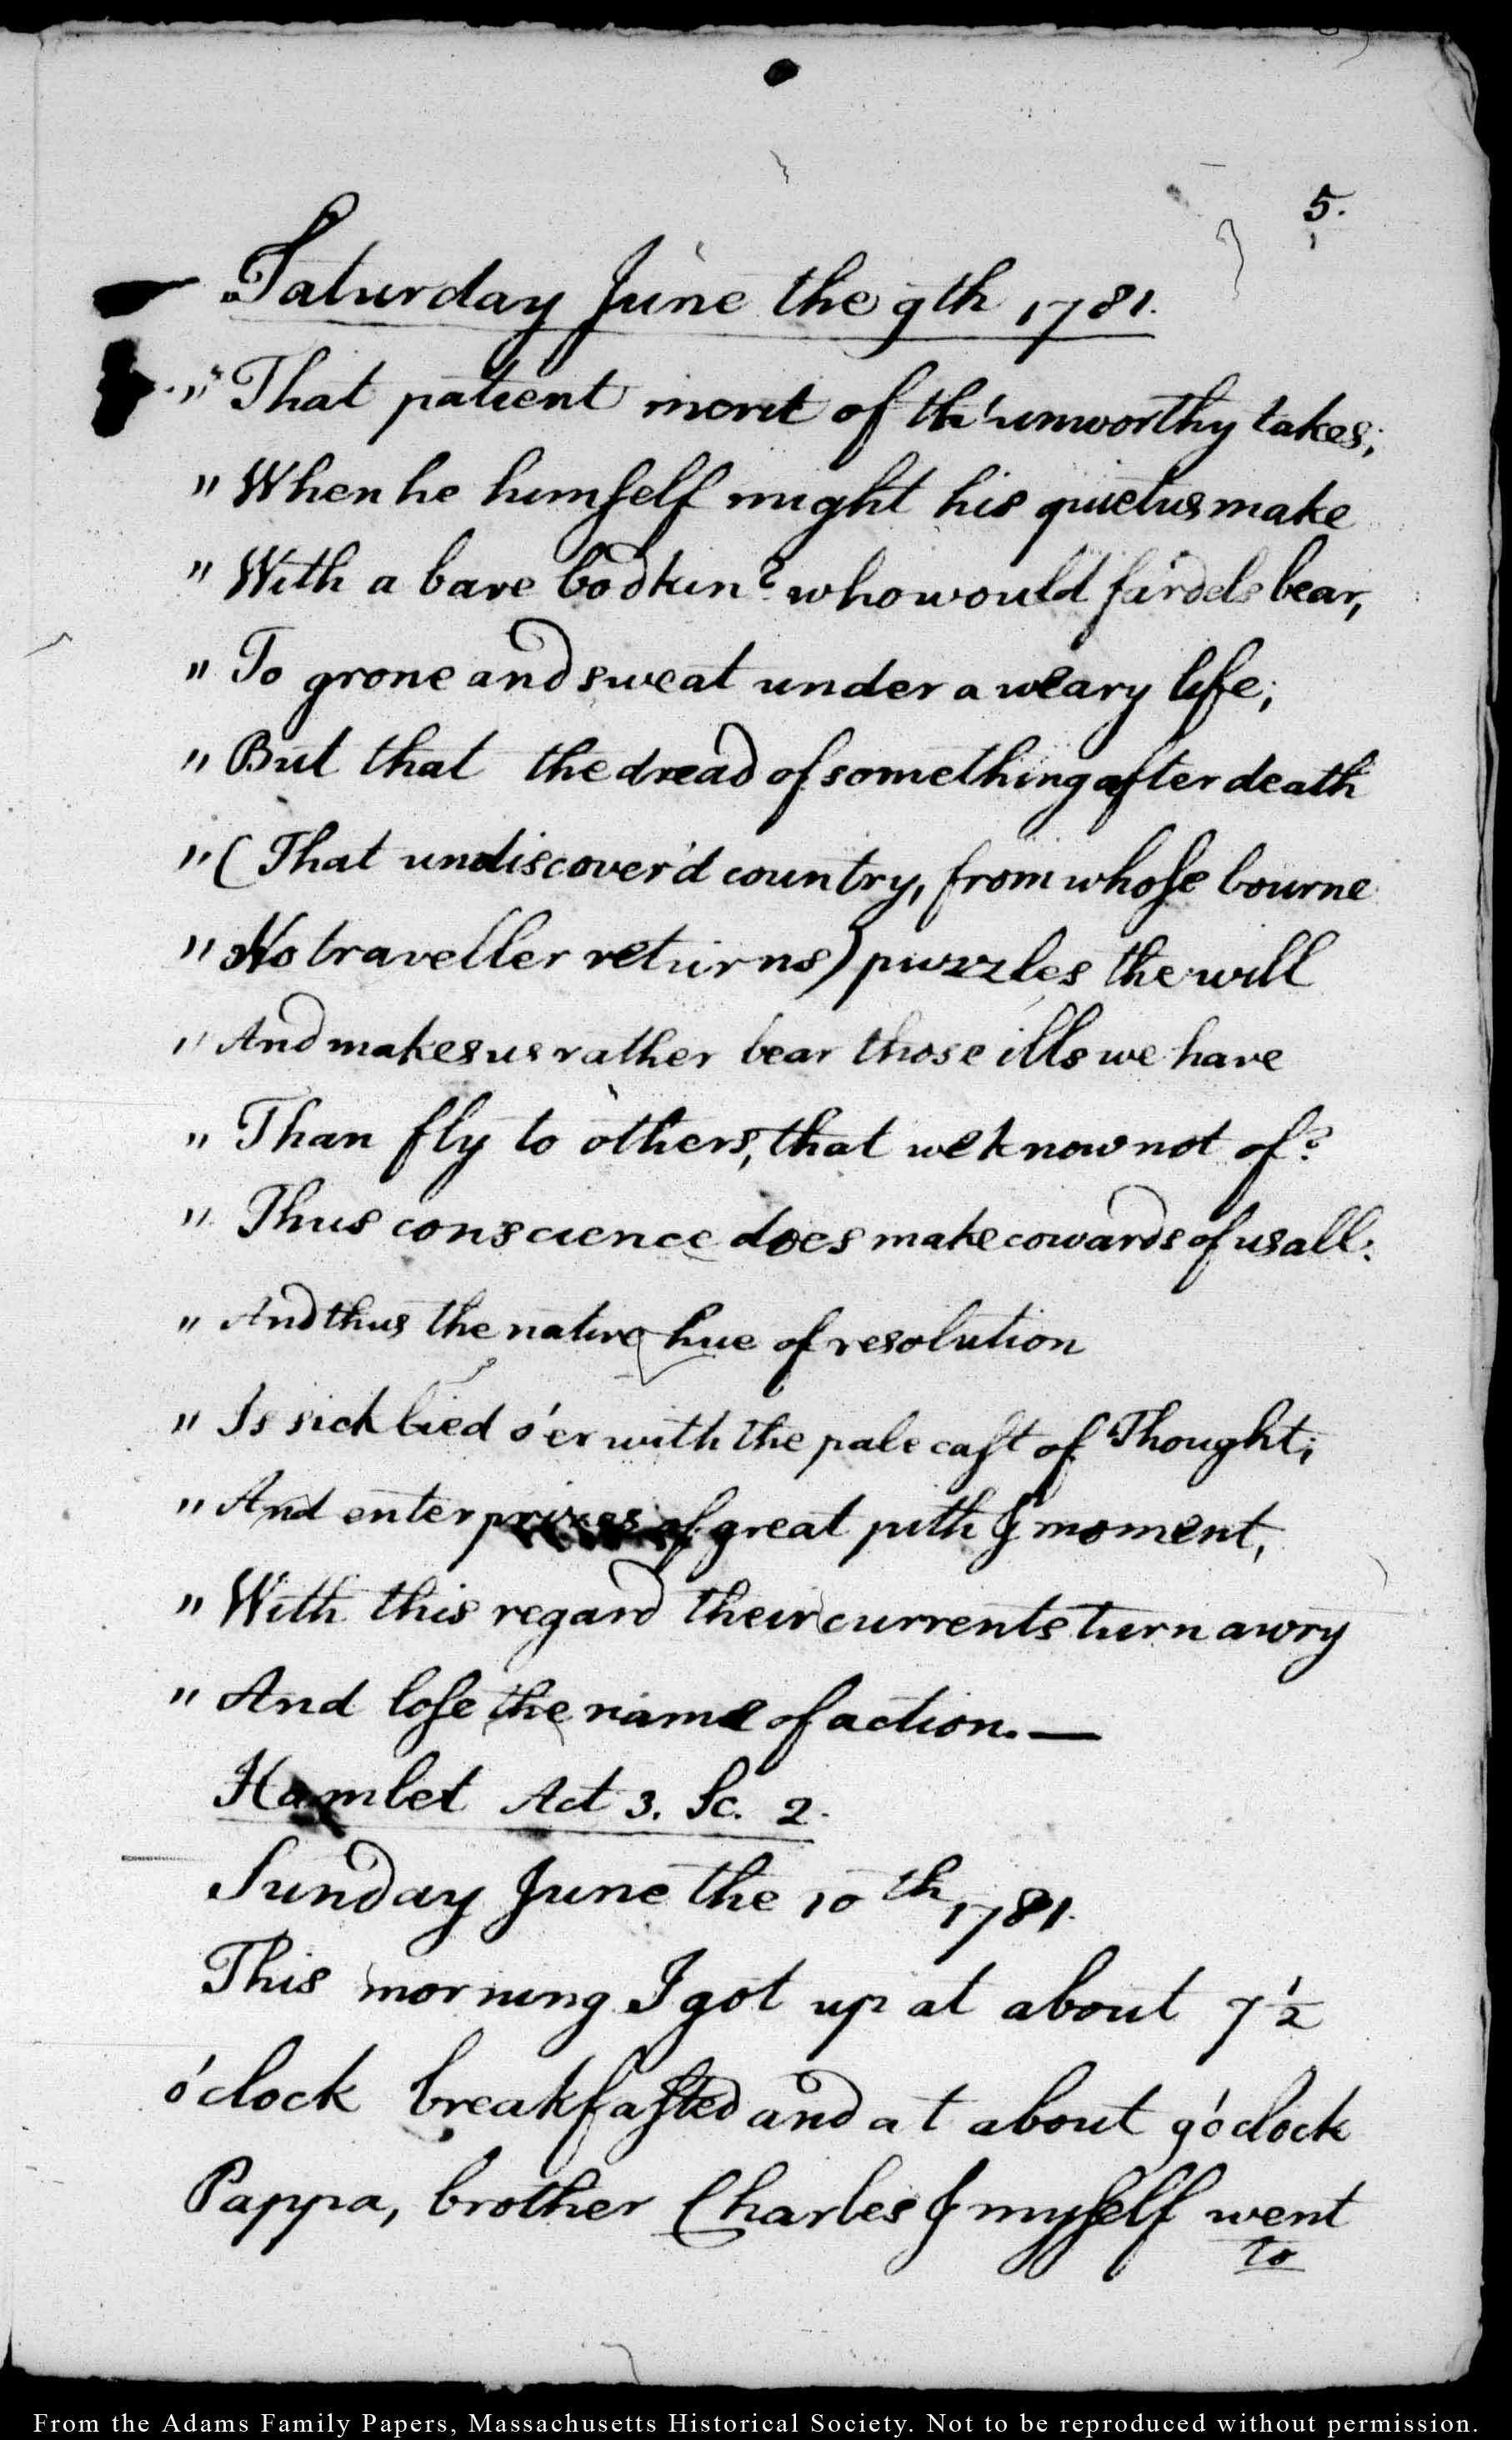 5.
Saturday June the 9th 1781.
" That patient merit of th' unworthy takes;
" When he himself might his quietus make
" With a bare bodkin? who would fardels bear,
" To grone and sweat under a weary life;
" But that the dread of something after death
" (That undiscover'd country, from whose bourne
" No traveller returns) puzzles the will
" And makes us rather bear those ills we have
" Than fly to others, that we know not of?
" Thus conscience does make cowards of us all:
" And thus the native hue of resolution
" Is sicklied o'er with the pale cast of Thought;
" And enterprizes of great pith & moment,
" With this regard their currents turn awry
" And lose the name of action. —
Hamlet Act 3. Sc. 2.
Sunday June the 10th 1781.
This morning I got up at about 7 1/2
o'clock breakfasted and at about 9 o'clock
Pappa, brother Charles & myself went
to
From the Adams Family Papers, Massachusetts Historical Society. Not to be reproduced without permission.